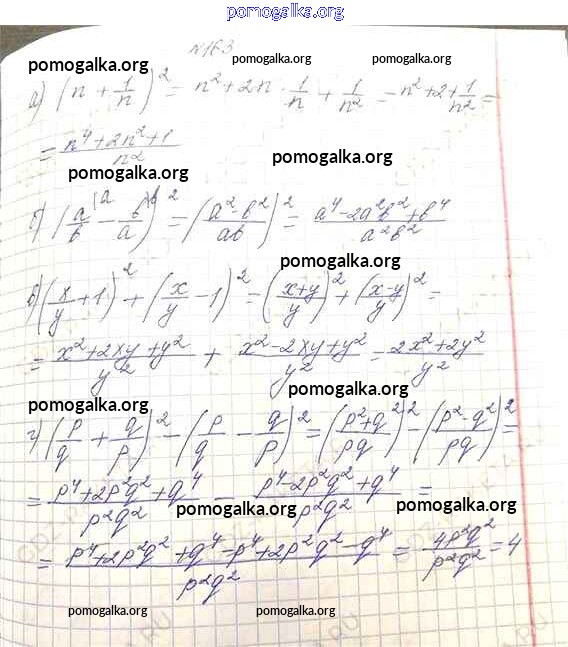 pomogalka.org
№163
pomogalka.org pomogalka.org pomogalka.org
а) (n + 1/n)² = n² + 2n · 1/n + 1/n² = n² + 2 + 1/n² =
= (n⁴ + 2n² + 1)/n²
pomogalka.org
pomogalka.org
б) (a/b^(a - b/a)^b)² = ((a² - b²)/ab)² = (a⁴ - 2a²b² + b⁴)/a²b²
pomogalka.org
в) (x/y + 1)² + (x/y - 1)² = ((x+y)/y)² + ((x-y)/y)² =
= (x² + 2xy + y²)/y² + (x² - 2xy + y²)/y² = (2x² + 2y²)/y²
pomogalka.org
pomogalka.org
г) (p/q + q/p)² - (p/q - q/p)² = ((p² + q²)/pq)² - ((p² - q²)/pq)² =
= (p⁴ + 2p²q² + q⁴)/p²q² - (p⁴ - 2p²q² + q⁴)/p²q² =
pomogalka.org pomogalka.org
= (p⁴ + 2p²q² + q⁴ - p⁴ + 2p²q² - q⁴)/p²q² = 4p²q²/p²q² = 4
pomogalka.org pomogalka.org